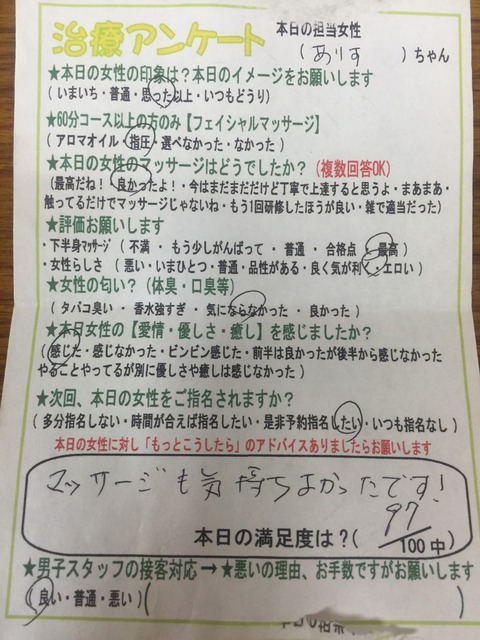 治療アンケート
本日の担当女性
(ありす)ちゃん
★本日の女性の印象は?本日のイメージをお願いします
(いまいち・普通・思った以上・いつもどうり)
★60分コース以上の方のみ【フェイシャルマッサージ】
(アロマオイル・指圧・選べなかった・なかった)
★本日の女性のマッサージはどうでしたか?(複数回答OK)
(最高だね!良かったよ!・今はまだまだだけど丁寧で上達すると思うよ・まあまあ・
触ってるだけでマッサージじゃないね・もう1回研修したほうが良い・雑で適当だった)
★評価お願いします
・下半身マッサージ(不満・もう少しがんばって・普通・合格点・最高)
・女性らしさ(悪い・いまひとつ・普通・品性がある・良く気が利く・エロい)
★女性の匂い?(体臭・口臭等)
(タバコ臭い・香水強すぎ・気にならなかった・良かった)
★本日女性の【愛情・優しさ・癒し】を感じましたか?
(感じた・感じなかった・ビンビン感じた・前半は良かったが後半から感じなかった
やることやってるが別に優しさや癒しは感じなかった)
★次回、本日の女性をご指名されますか?
(多分指名しない・時間が合えば指名したい・是非予約指名したい・いつも指名なし)
本日の女性に対し「もっとこうしたら」のアドバイスありましたらお願いします
マッサージも気持ちよかったです!
本日の満足度は?(97/100中)
★男子スタッフの接客対応→★悪いの理由、お手数ですがお願いします
(良い・普通・悪い)( )